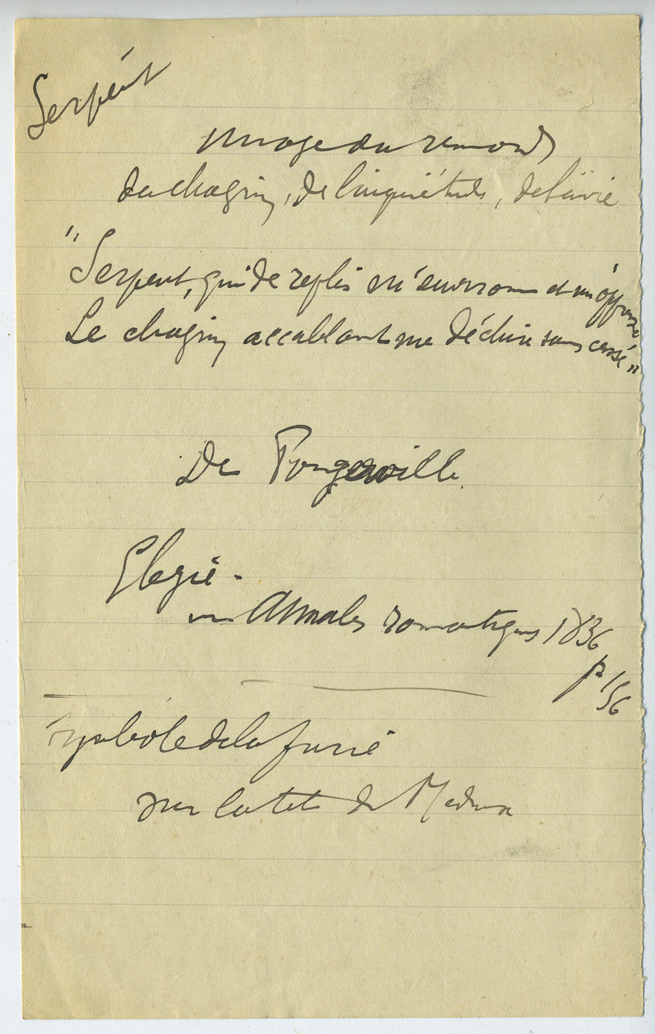 Serpent
image du remords
du chagrin, de l'inquiétude, de l'envie
"Serpent, qui de replis m'environne et m'oppresse
Le chagrin accablant me déchire sans cesse"
De Pongerville
Elegie -
in Annales romantiques 1836
p 156
Symbole de la furie
sur la tete de Medusa